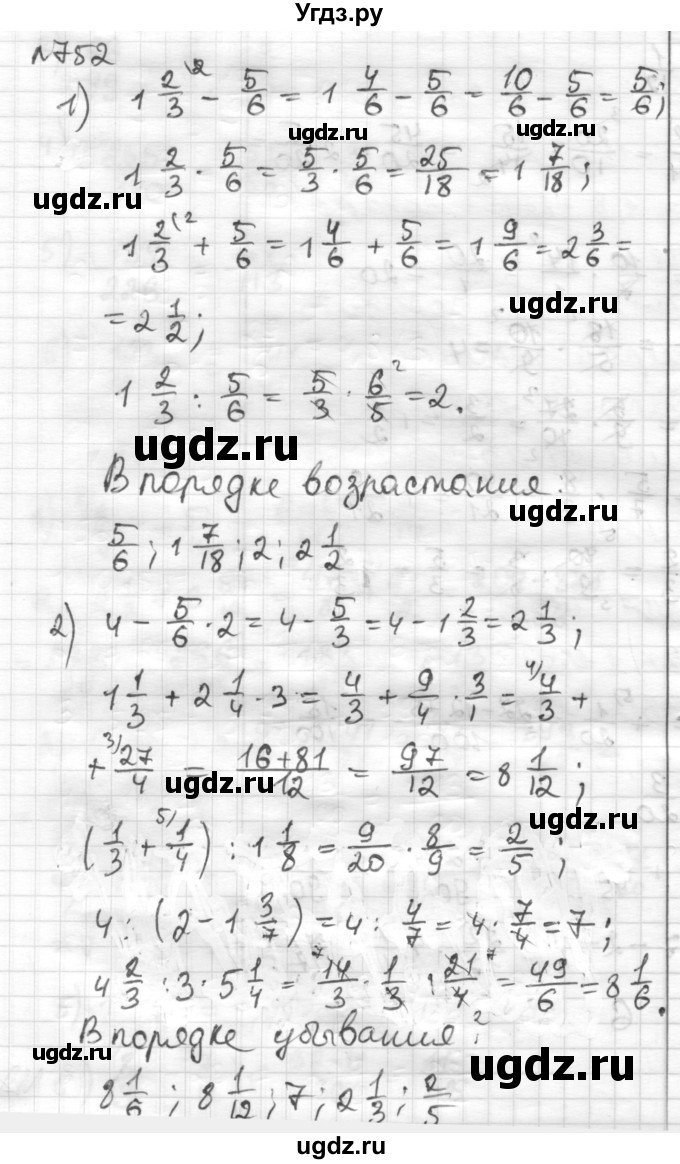 Угдз.ру
№752
1) 1 2/3 \2 - 5/6 = 1 4/6 - 5/6 = 10/6 - 5/6 = 5/6;
ugdz.ru
ugdz.ru
1 2/3 · 5/6 = 5/3 · 5/6 = 25/18 = 1 7/18;
ugdz.ru
1 2/3 (2 + 5/6 = 1 4/6 + 5/6 = 1 9/6 = 2 3/6 =
ugdz.ru
= 2 1/2;
1 2/3 : 5/6 = 5/3 · 6/5 2 = 2.
ugdz.ru
В порядке возрастания:
ugdz.ru
5/6; 1 7/18; 2; 2 1/2
2) 4 - 5/6 · 2 = 4 - 5/3 = 4 - 1 2/3 = 2 1/3;
1 1/3 + 2 1/4 · 3 = 4/3 + 9/4 · 3/1 = 4/ 4/3 +
+ 3/ 27/4 = 16+81/12 = 97/12 = 8 1/12;
ugdz.ru
ugdz.ru
(1/3 + 5/ 1/4) : 1 1/8 = 9/20 · 8/9 = 2/5;
4 : (2 - 1 3/7) = 4 : 4/7 = 4 · 7/4 = 7;
4 2/3 : 3 · 5 1/4 = 7 14/3 · 1/3 · 21/4 7 2 = 49/6 = 8 1/6.
В порядке убывания:
ugdz.ru
ugdz.ru
8 1/6; 8 1/12; 7; 2 1/3; 2/5
ugdz.ru